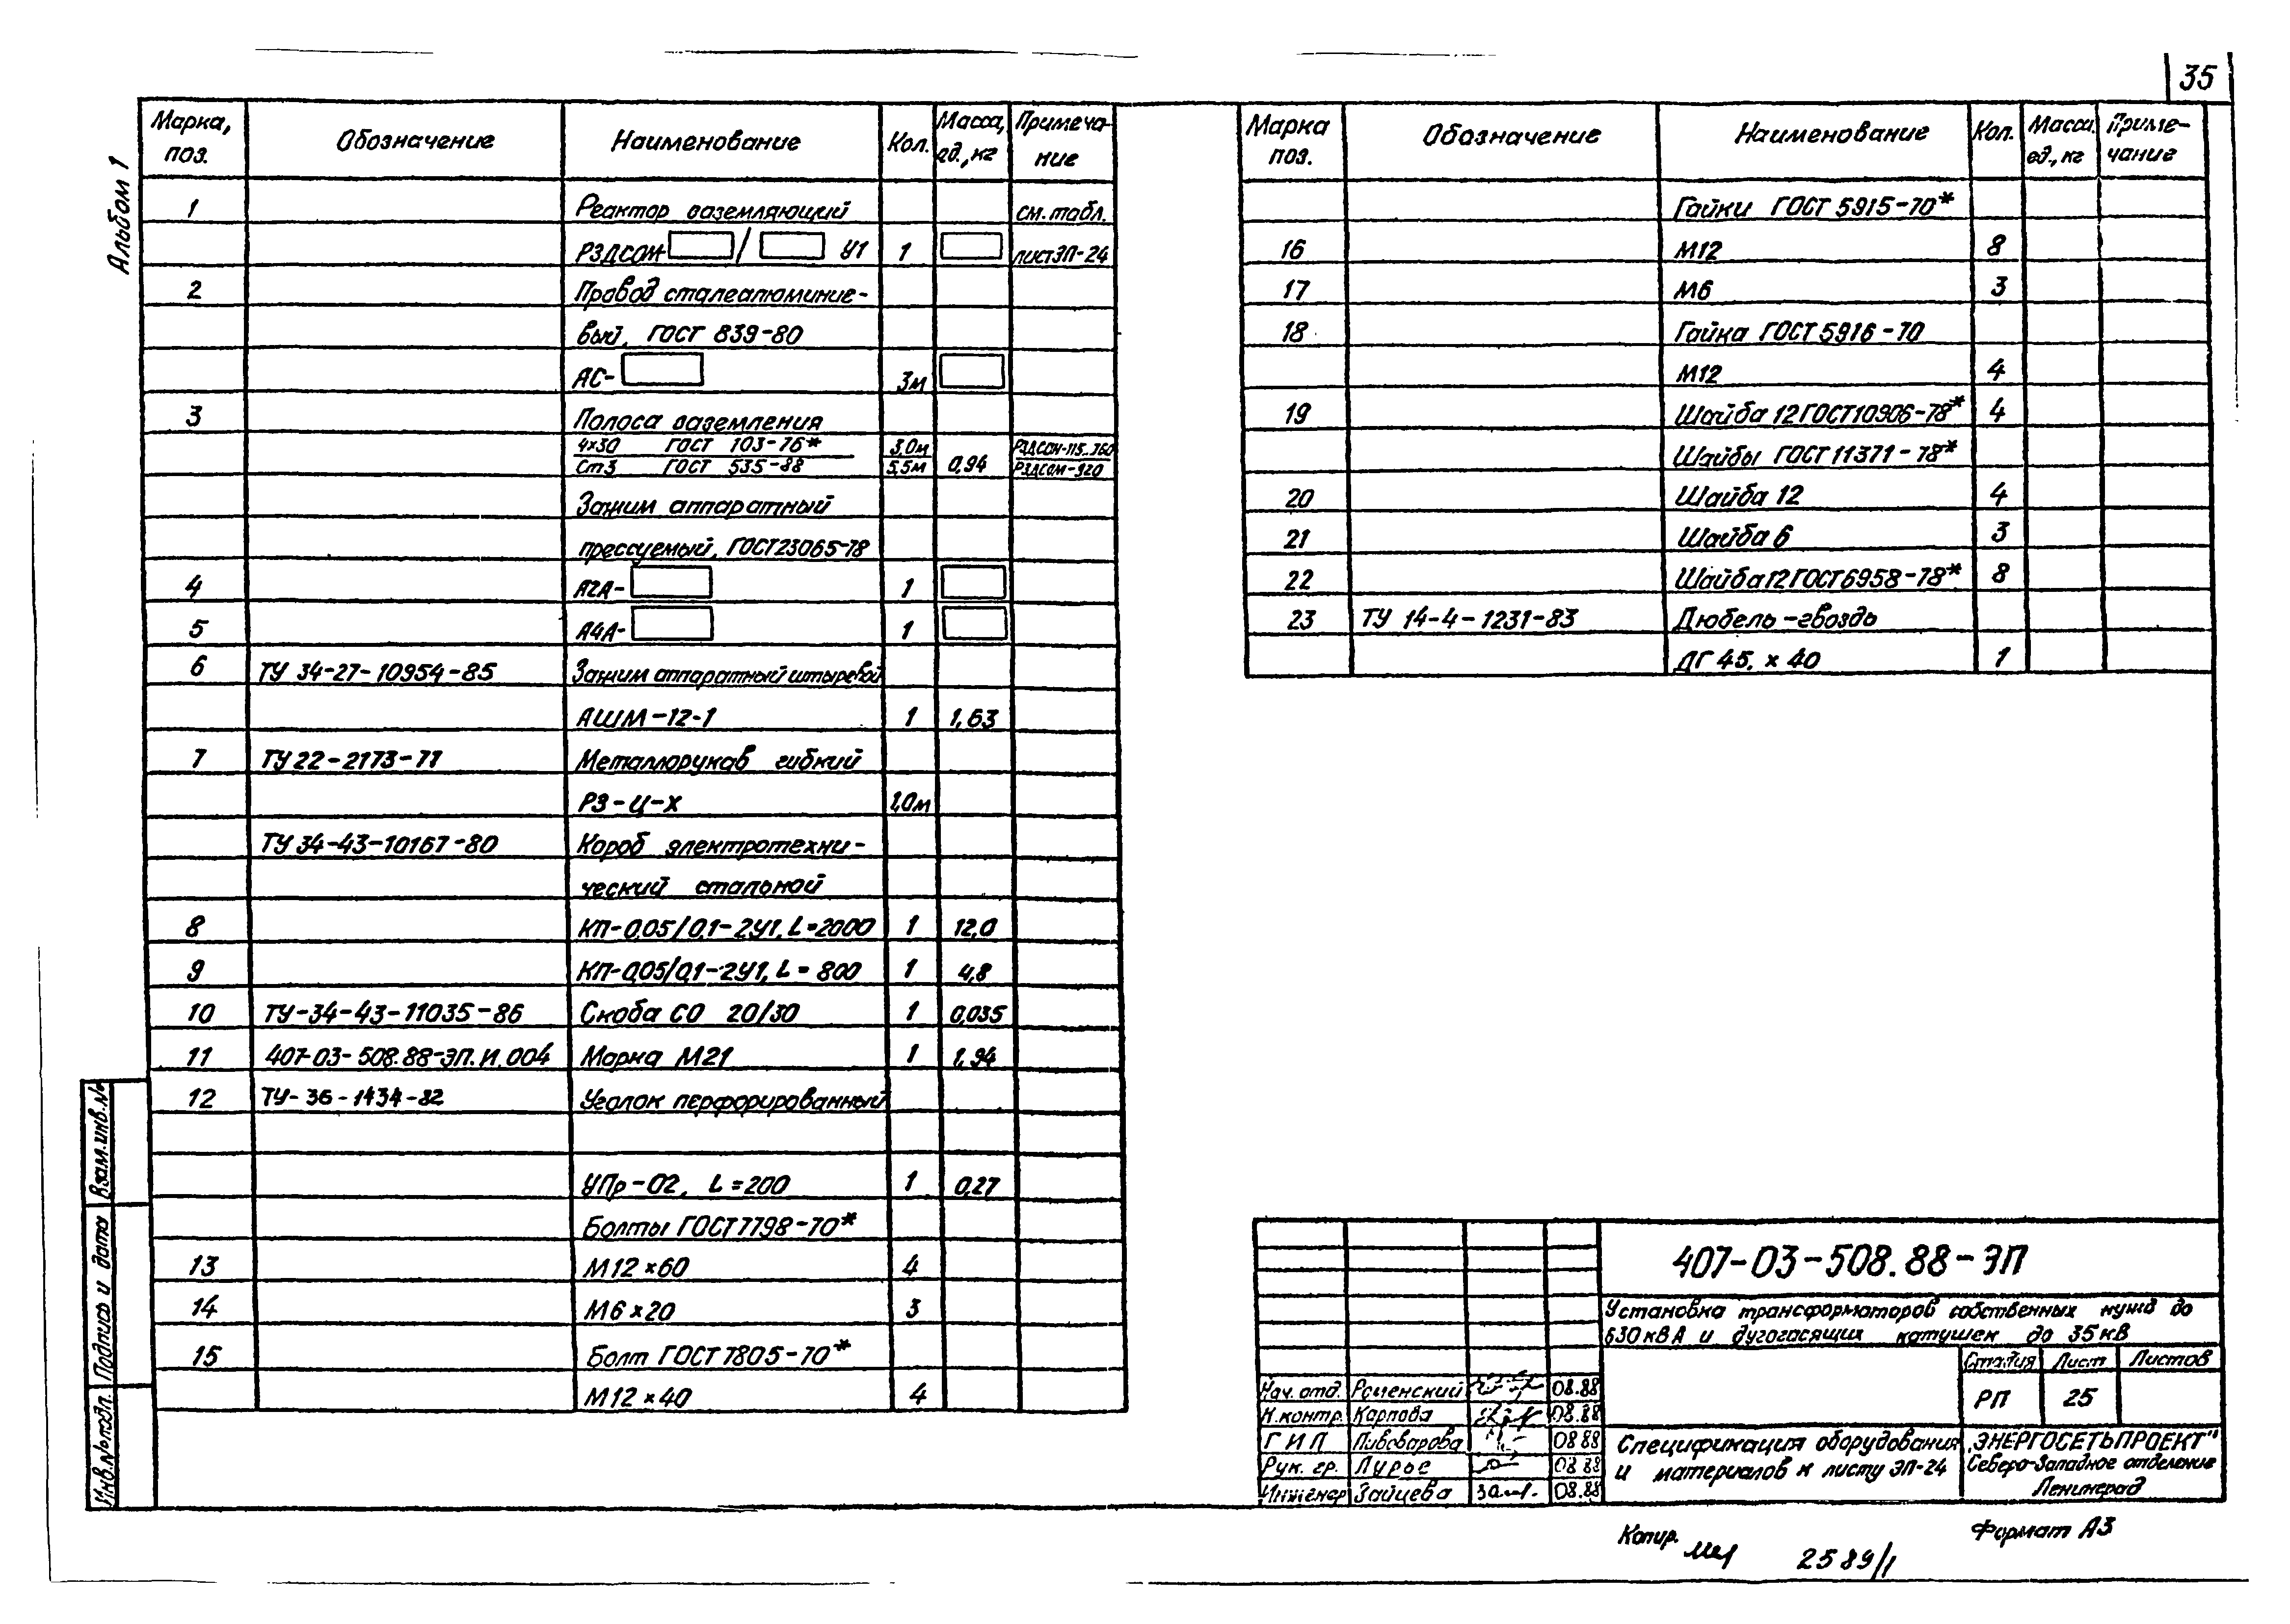 35
Альбом 1
Марка, поз. Обозначение Наименование Кол. Масса, ед., кг Примечание
1 Реактор заземляющий см. табл.
РЗДСОМ / У1 1 лист ЭП-24
2 Провод сталеалюминие-
вый, ГОСТ 839-80
АС- 3м
3 Полоса заземления
4×30 ГОСТ 103-76* 3,0м РЗДСОМ-115..760
Ст3 ГОСТ 535-88 5,5м 0,94 РЗДСОМ-920
Зажим аппаратный
прессуемый, ГОСТ 23065-78
4 А2А- 1
5 А4А- 1
6 ТУ 34-27-10954-85 Зажим аппаратный штыревой
АШМ-12-1 1 1,63
7 ТУ 22-2173-71 Металлорукав гибкий
РЗ-Ц-Х 1,0м
ТУ 34-43-10167-80 Короб электротехни-
ческий стальной
8 КП-0,05/0,1-2У1, L=2000 1 12,0
9 КП-0,05/0,1-2У1, L=800 1 4,8
10 ТУ-34-43-11035-86 Скоба СО 20/30 1 0,035
11 407-03-508.88-ЭП.И.004 Марка М21 1 1,94
12 ТУ-36-1434-82 Уголок перфорированный
УПр-02, L=200 1 0,27
Болты ГОСТ 7798-70*
13 М12×60 4
14 М6×20 3
15 Болт ГОСТ 7805-70*
М12×40 4
Марка поз. Обозначение Наименование Кол. Масса, ед., кг Приме-чание
Гайки ГОСТ 5915-70*
16 М12 8
17 М6 3
18 Гайка ГОСТ 5916-70
М12 4
19 Шайба 12 ГОСТ 10906-78* 4
Шайбы ГОСТ 11371-78*
20 Шайба 12 4
21 Шайба 6 3
22 Шайба 12 ГОСТ 6958-78* 8
23 ТУ 14-4-1231-83 Дюбель-гвоздь
ДГ 4,5 × 40 1
Взам. инв. №
Подпись и дата
Инв. № подл.
407-03-508.88-ЭП
Установка трансформаторов собственных нужд до
630 кВА и дугогасящих катушек до 35 кВ
Стадия Лист Листов
РП 25
Нач. отд. Роменский 08.88
Н. контр. Карпова 08.88
ГИП Пивоварова 08.88
Рук. гр. Лурье 08.88
Инженер Зайцева 08.88
Спецификация оборудования
и материалов к листу ЭП-24
"ЭНЕРГОСЕТЬПРОЕКТ"
Северо-Западное отделение
Ленинград
Копир.
Формат А3
2589/1